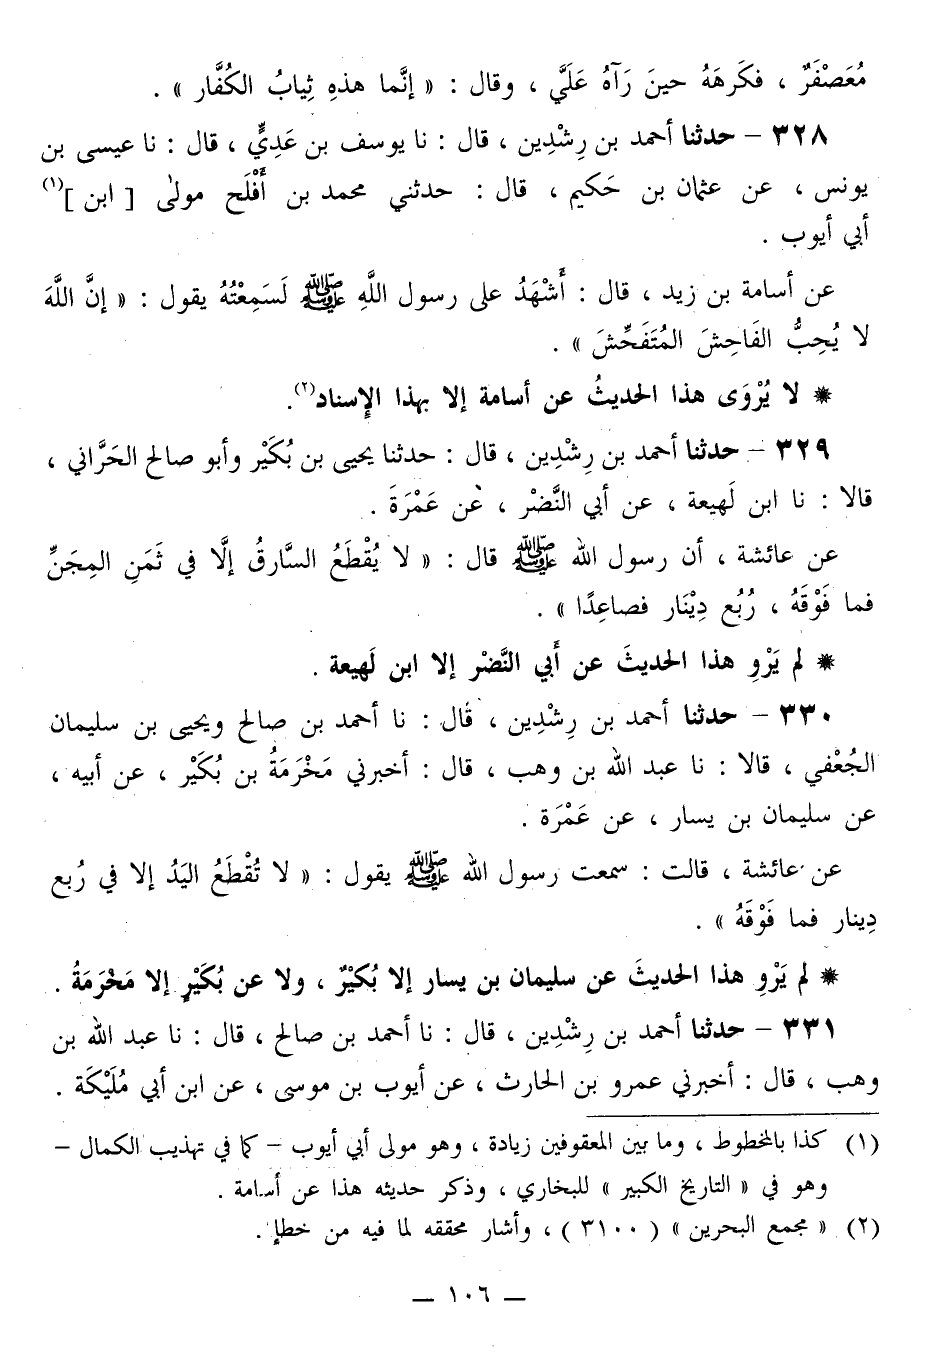 مُعَصْفَرٌ ، فكَرِهَهُ حينَ رَآهُ عَلَيَّ ، وقال : « إنَّما هذهِ ثِيابُ الكُفَّار » .
٣٢٨ – حدثنا أحمد بن رِشْدِين ، قال : نا يوسف بن عَدِيٍّ ، قال : نا عيسى بن
يونس ، عن عثمان بن حَكيم ، قال : حدثني محمد بن أَفْلَح مولى [ ابن ](١)
أبي أيوب .
عن أسامة بن زيد ، قال : أَشْهَدُ على رسول اللَّهِ ﷺ لَسَمِعْتُهُ يقول : « إنَّ اللَّهَ
لا يُحِبُّ الفَاحِشَ المُتَفَحِّشَ » .
* لا يُرْوَى هذا الحديثُ عن أسامة إلا بهذا الإسناد(٢).
٣٢٩ – حدثنا أحمد بن رِشْدِين ، قال : حدثنا يحيى بن بُكَيْر وأبو صالح الحَرَّاني ،
قالا : نا ابن لَهيعة ، عن أبي النَّضْر ، عن عَمْرَةَ .
عن عائشة ، أن رسول الله ﷺ قال : « لا يُقْطَعُ السَّارقُ إلَّا في ثَمَنِ المِجَنِّ
فما فَوْقَهُ ، رُبُع دِيْنَار فصاعِدًا » .
* لم يَرْوِ هذا الحديثَ عن أَبي النَّضْر إلا ابن لَهيعة .
٣٣٠ – حدثنا أحمد بن رِشْدِين ، قال : نا أحمد بن صالح ويحيى بن سليمان
الجُعْفي ، قالا : نا عبد الله بن وهب ، قال : أخبرني مَخْرَمَةُ بن بُكَيْر ، عن أبيه ،
عن سليمان بن يسار ، عن عَمْرَة .
عن عائشة ، قالت : سمعت رسول الله ﷺ يقول : « لا تُقْطَعُ اليَدُ إلا في رُبع
دِينار فما فَوْقَهُ » .
* لم يَرْوِ هذا الحديثَ عن سليمان بن يسار إلا بُكَيْرٌ ، ولا عن بُكَيْرٍ إلا مَخْرَمَةُ .
٣٣١ – حدثنا أحمد بن رِشْدِين ، قال : نا أحمد بن صالح ، قال : نا عبد الله بن
وهب ، قال : أخبرني عمرو بن الحارث ، عن أيوب بن موسى ، عن ابن أبي مُلَيْكَة .
(١) كذا بالمخطوط ، وما بين المعقوفين زيادة ، وهو مولى أبي أيوب – كما في تهذيب الكمال –
وهو في « التاريخ الكبير » للبخاري ، وذكر حديثه هذا عن أسامة .
(٢) « مجمع البحرين » ( ٣١٠٠ ) ، وأشار محققه لما فيه من خطإ .
— ١٠٦ —